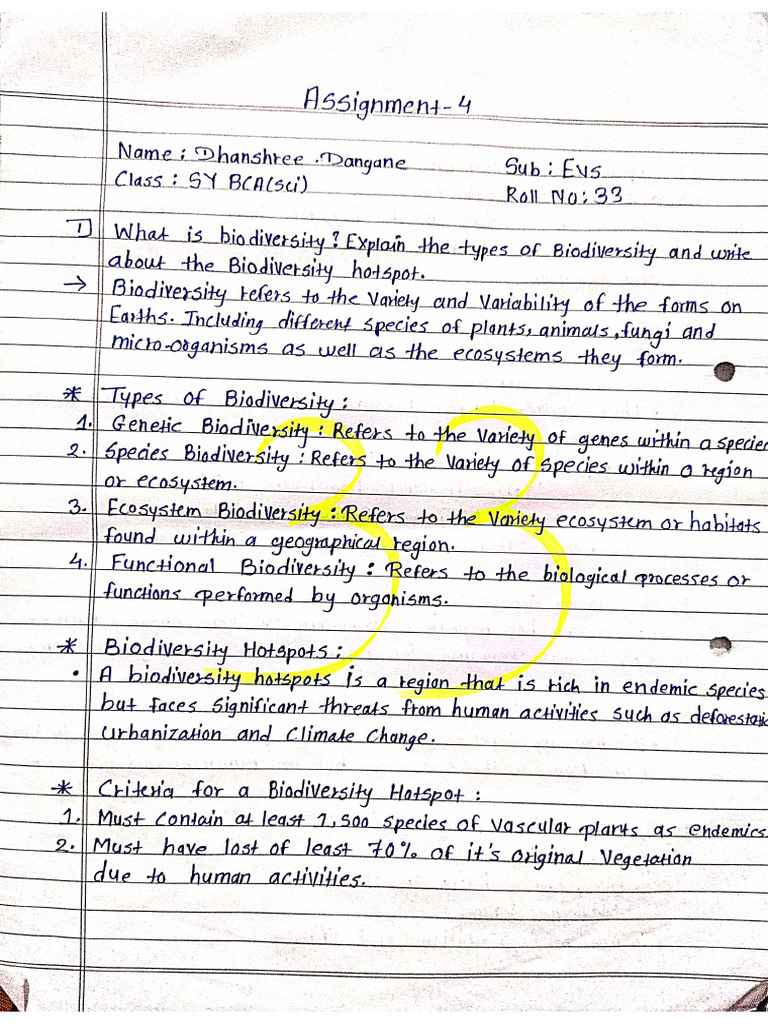 Assignment-4
Name: Dhanshree .Dangane Sub: Evs
Class: SY BCA(Sci) Roll No: 33
1] What is biodiversity? Explain the types of Biodiversity and write
about the Biodiversity hotspot.
→ Biodiversity refers to the Variety and Variability of the forms on
Earths. Including different species of plants, animals, fungi and
micro-organisms as well as the ecosystems they form.
* Types of Biodiversity:
1. Genetic Biodiversity: Refers to the Variety of genes within a species
2. Species Biodiversity: Refers to the Variety of species within a region
or ecosystem.
3. Ecosystem Biodiversity: Refers to the Variety ecosystem or habitats
found within a geographical region.
4. Functional Biodiversity: Refers to the biological processes or
functions performed by organisms.
* Biodiversity Hotspots:
• A biodiversity hotspots is a region that is rich in endemic species
but faces significant threats from human activities such as deforestatic
urbanization and Climate Change.
* Criteria for a Biodiversity Hotspot:
1. Must contain at least 1,500 species of vascular plants as endemics.
2. Must have lost of least 70% of it's original Vegetation
due to human activities.
33